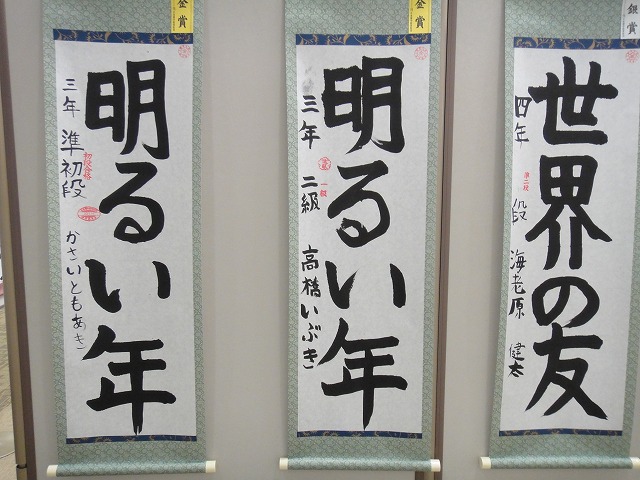 金賞
明るい年
三年 準初段 かさいともあき
初段合格
金賞
明るい年
三年 二級 高橋いぶき
一級
銀賞
世界の友
四年 段 海老原 健太
準二段